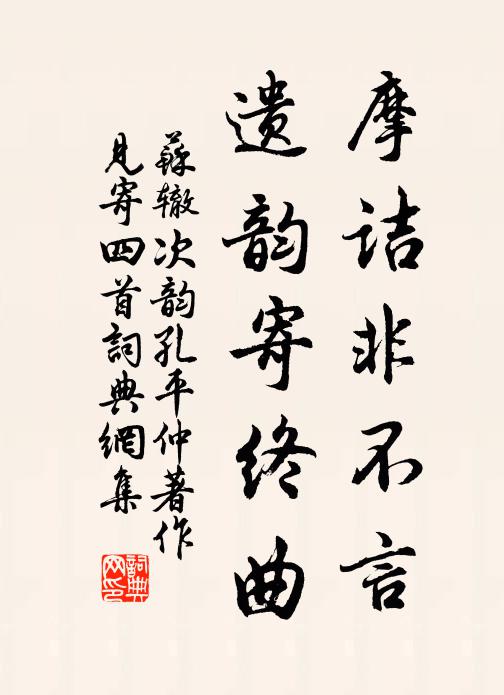 摩诘非不言
遗韵寄终曲
蘇辙次韵孔平仲著作
見寄四首詞典網集
詞典网印